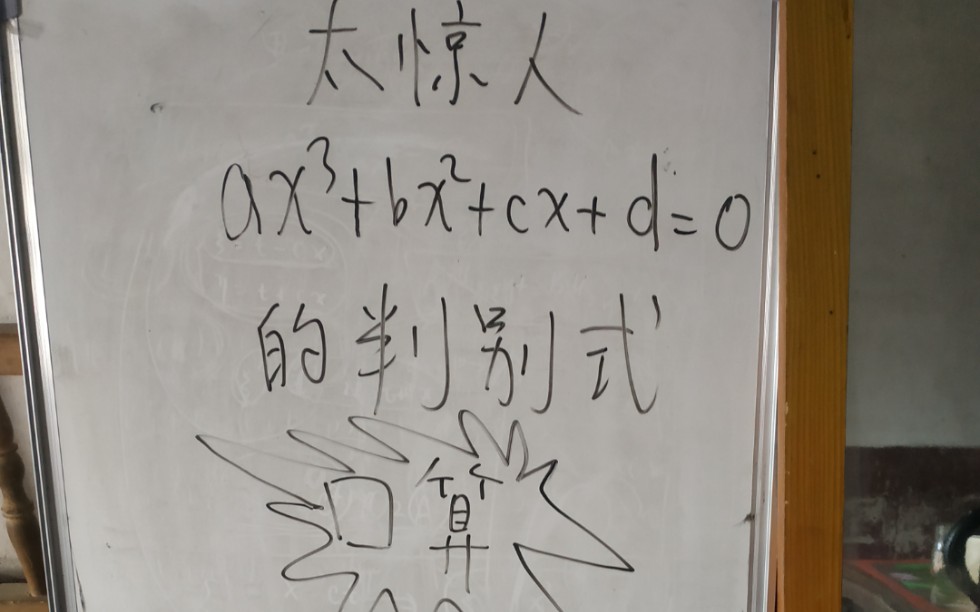 太惊人
ax³+bx²+cx+d=0
的判别式
口算